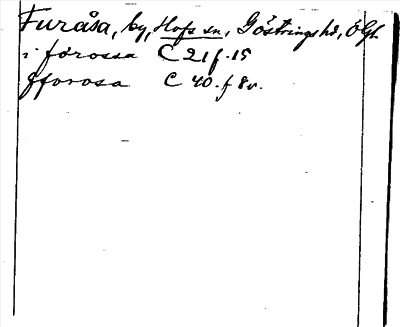 Furåsa, by, Hofs sn, Göstrings hd, Ögh.
i fórossa C 21 f. 15
fforosa C 40. f 8v.